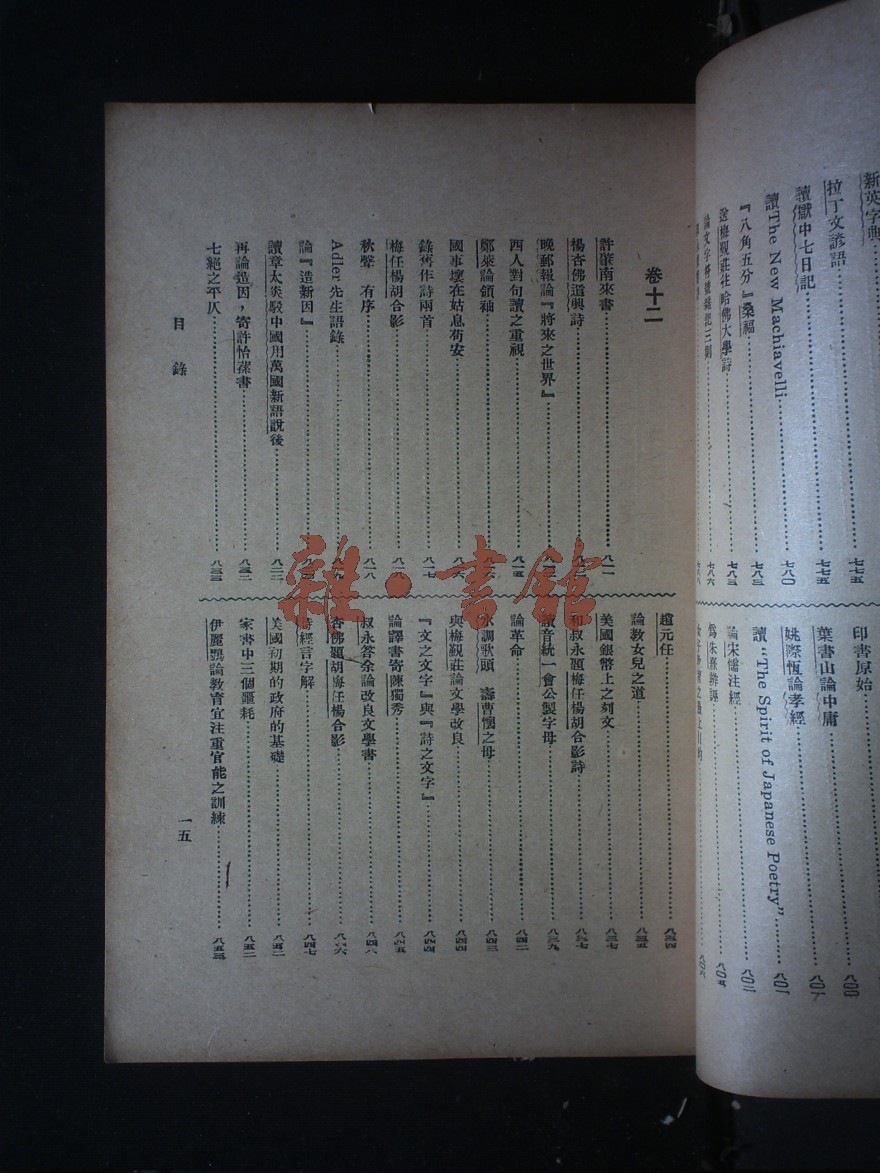 新英字典
拉丁文諺語……七七五
讀獄中七日記……七七五
讀The New Machiavelli……七八〇
『八角五分』桑福……七八三
送梅覲莊往哈佛大學詩……七八三
論文字符號雜記三則……七八六
印書原始……八〇〇
葉書山論中庸……八〇一
姚際恆論孝經……八〇一
讀“The Spirit of Japanese Poetry”
論宋儒注經……八〇二
為朱熹辨誣……八〇五
卷十二
許肇南來書……八一一
楊杏佛遣興詩
晚郵報論『將來之世界』
西人對句讀之重視……八一五
鄭萊論領袖
國事壞在姑息苟安……八一六
錄舊作詩兩首……八一七
梅任楊胡合影……八一八
秋聲　有序……八一八
Adler先生語錄
論『造新因』
讀章太炎駁中國用萬國新語說後……八二二
再論造因，寄許怡蓀書……八三二
七絕之平仄……八三三
趙元任……八三四
論教女兒之道……八三五
美國銀幣上之刻文……八三七
和叔永題梅任楊胡合影詩……八三七
讀音統一會公製字母……八三九
論革命……八四二
水調歌頭　壽曹懷之母……八四三
與梅覲莊論文學改良……八四四
『文之文字』與『詩之文字』……八四四
論譯書寄陳獨秀……八四五
叔永答余論改良文學書……八四八
杏佛題胡梅任楊合影……八四六
詩經言字解……八四七
美國初期的政府的基礎……八五二
家書中三個噩耗……八五二
伊麗鸚論教育宜注重官能之訓練……八五三
目錄
一五
雜·書館